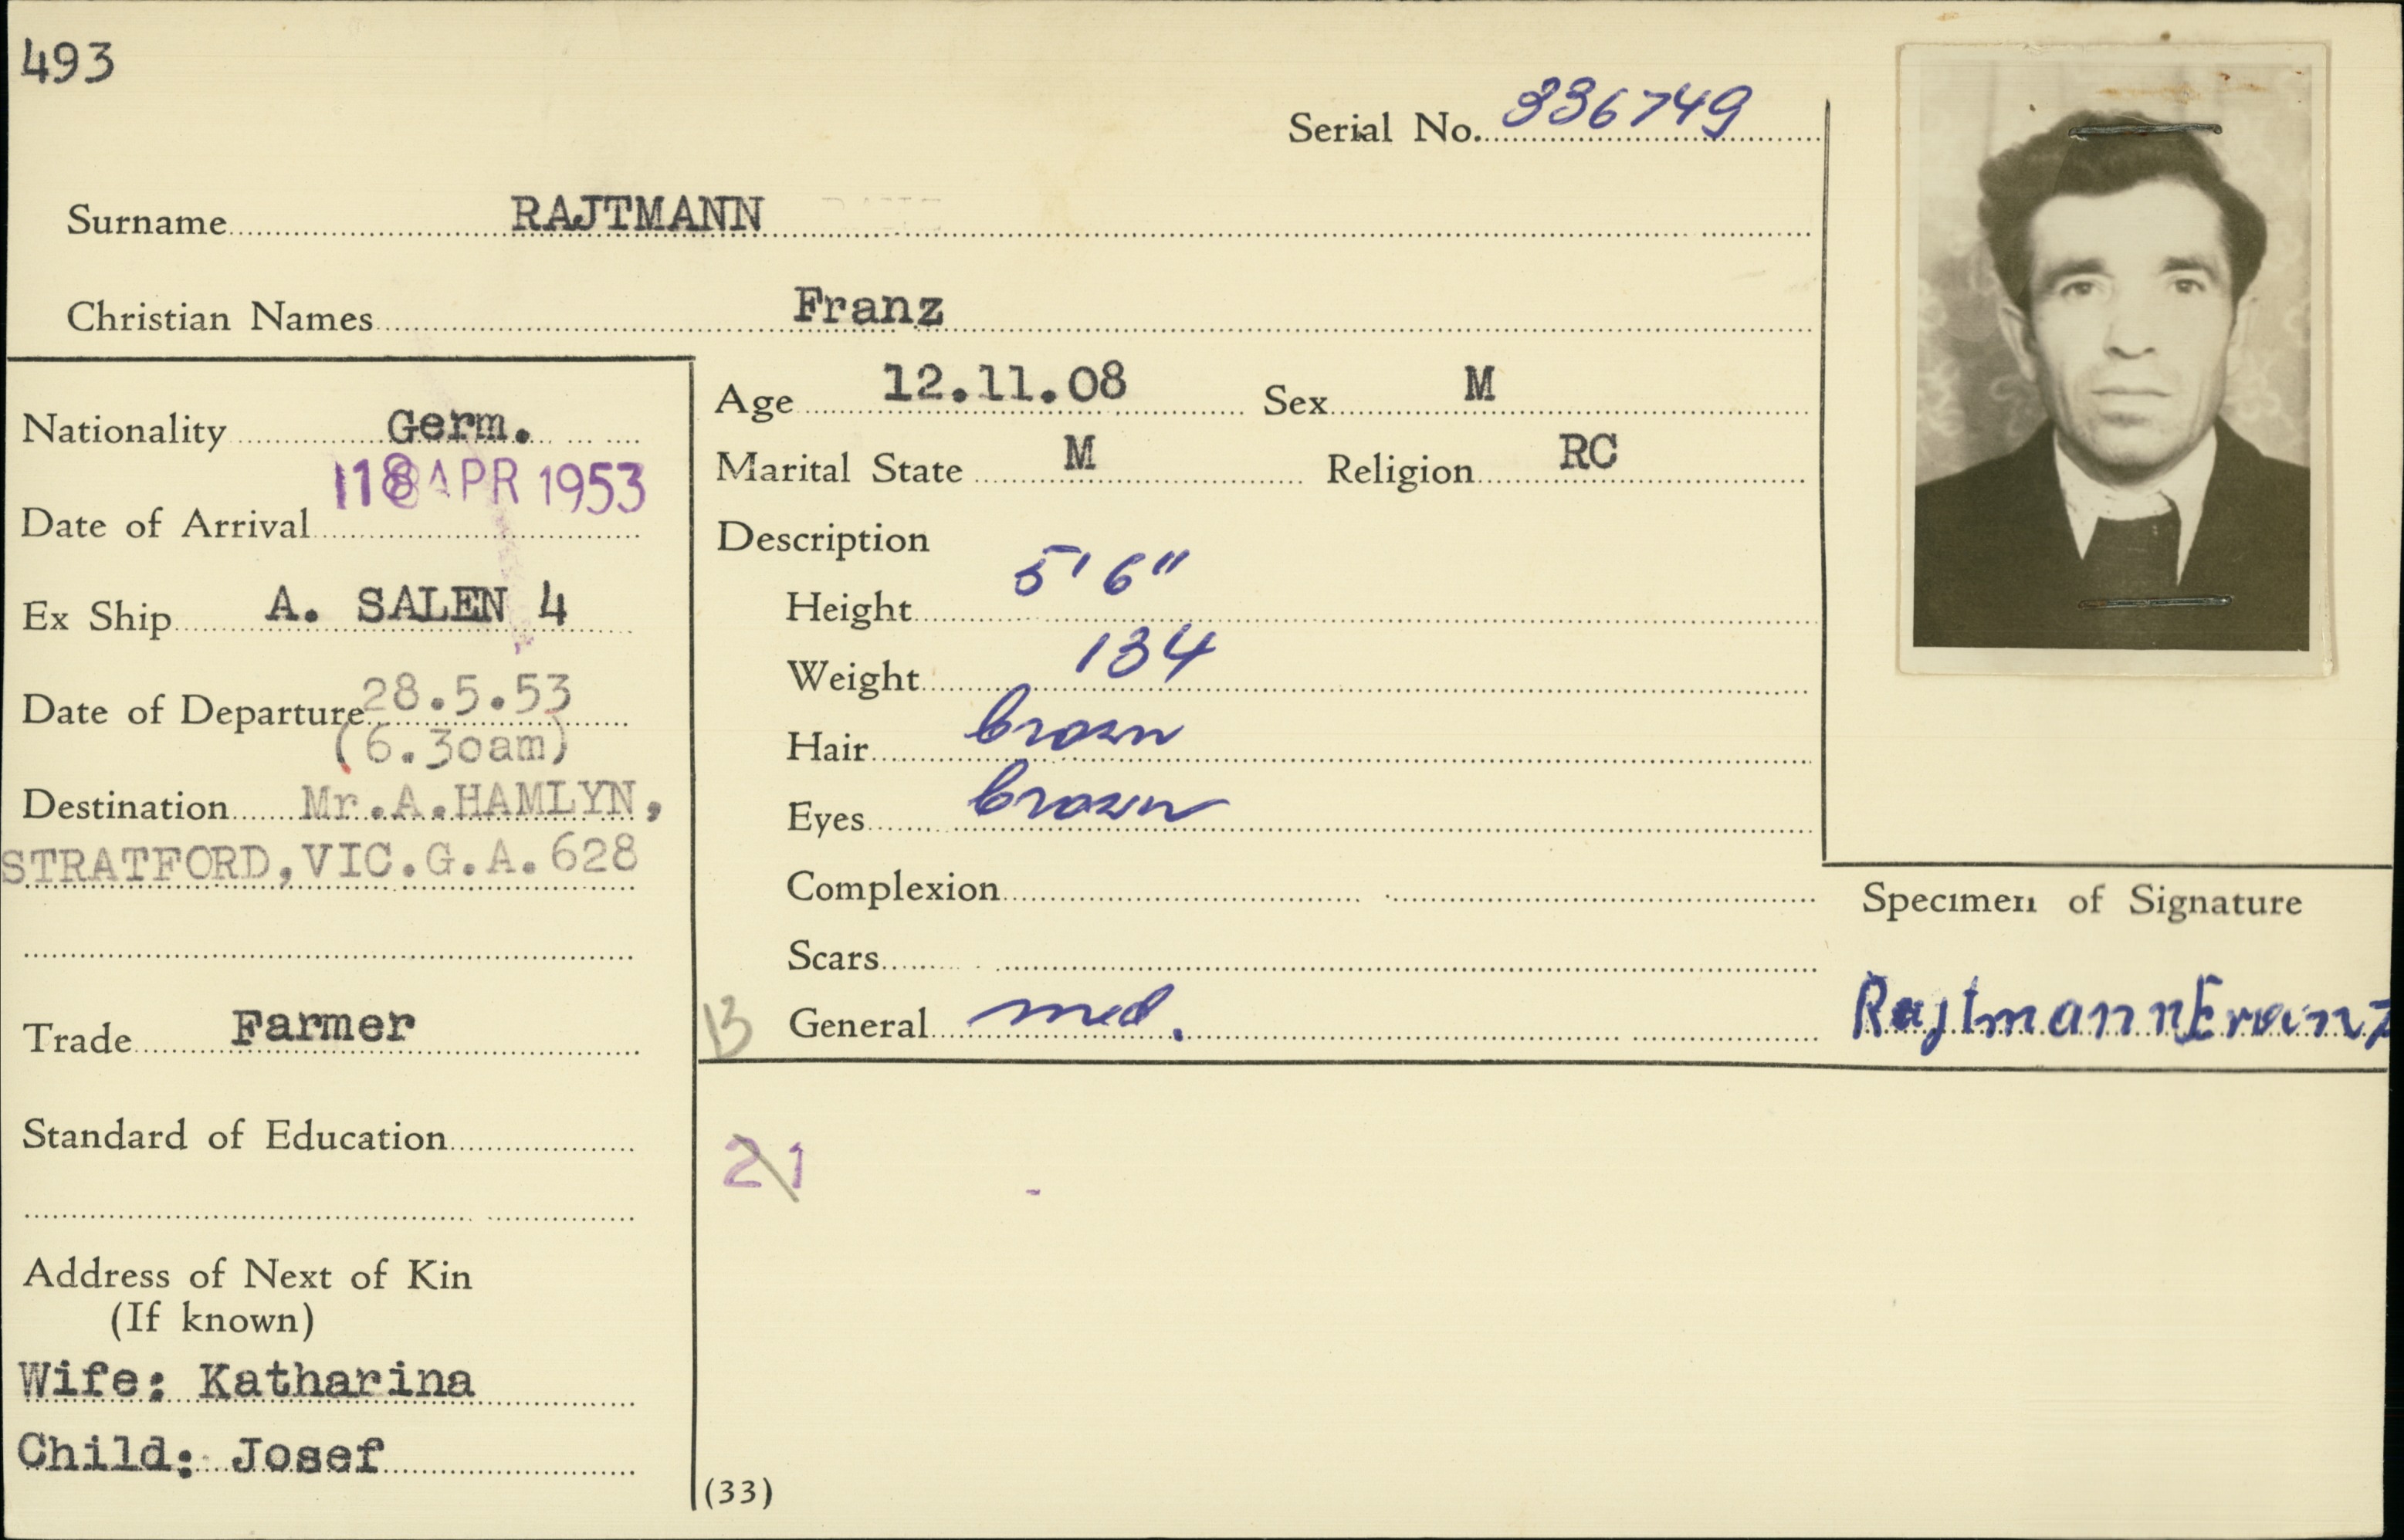 493
Serial No. 336749
Surname RAJTMANN
Christian Names Franz
Nationality Germ.
Date of Arrival 18 APR 1953
Ex Ship A. SALEN 4
Date of Departure 28.5.53
(6.30am)
Destination Mr.A.HAMLYN,
STRATFORD,VIC.G.A.628
Trade Farmer
Standard of Education
Address of Next of Kin
(If known)
Wife: Katharina
Child: Josef
Age 12.11.08 Sex M
Marital State M Religion RC
Description
Height 5'6"
Weight 134
Hair brown
Eyes brown
Complexion
Scars
B General med.
21
(33)
Specimen of Signature
Rajtmann Franz